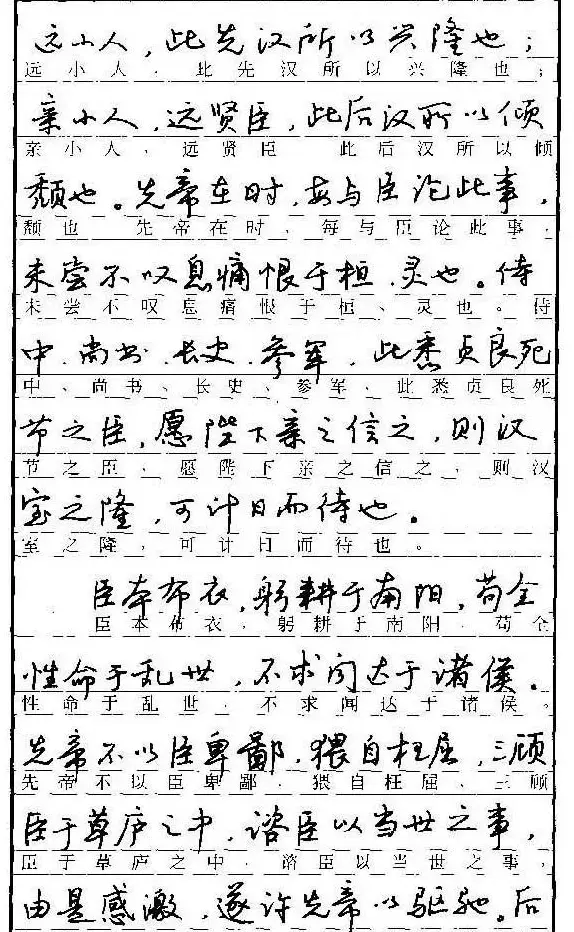 远小人，此先汉所以兴隆也；
远小人，此先汉所以兴隆也；
亲小人，远贤臣，此后汉所以倾
亲小人，远贤臣，此后汉所以倾
颓也。先帝在时，每与臣论此事，
颓也。先帝在时，每与臣论此事，
未尝不叹息痛恨于桓、灵也。侍
未尝不叹息痛恨于桓、灵也。侍
中、尚书、长史、参军，此悉贞良死
中、尚书、长史、参军，此悉贞良死
节之臣，愿陛下亲之信之，则汉
节之臣，愿陛下亲之信之，则汉
室之隆，可计日而待也。
室之隆，可计日而待也。
臣本布衣，躬耕于南阳，苟全
臣本布衣，躬耕于南阳，苟全
性命于乱世，不求闻达于诸侯。
性命于乱世，不求闻达于诸侯。
先帝不以臣卑鄙，猥自枉屈，三顾
先帝不以臣卑鄙，猥自枉屈，三顾
臣于草庐之中，谘臣以当世之事，
臣于草庐之中，谘臣以当世之事，
由是感激，遂许先帝以驱驰。后